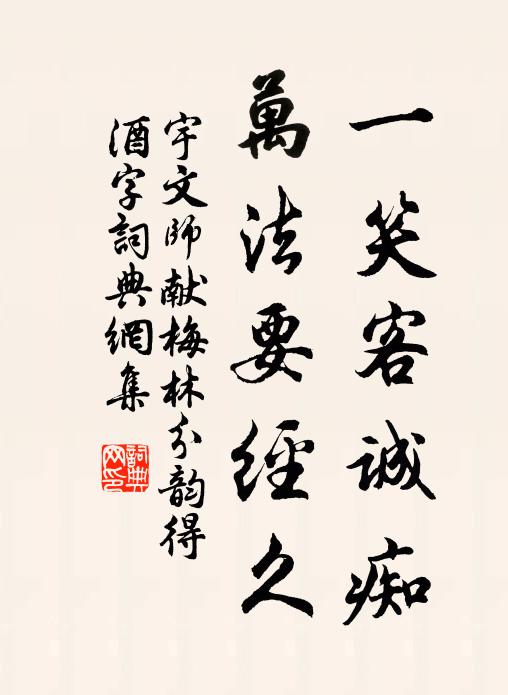 一笑客誠痴
萬法要經久
宇文師献梅林分韵得
酒字詞典網集
詞典
网印